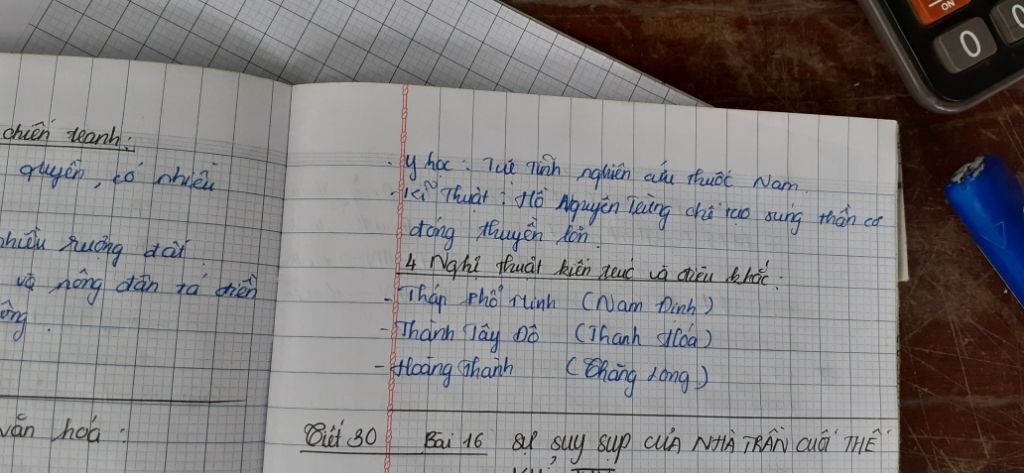 chiến tranh:
quyền, có nhiều
nhiều ruộng đất
và nông dân tá điền
ông.
văn hoá:
- y học: Tuệ Tĩnh nghiên cứu thuốc Nam.
- Kĩ Thuật: Hồ Nguyên Trừng chế tạo súng thần cơ
đóng thuyền lớn.
4 Nghệ thuật kiến trúc và điêu khắc:
- Tháp Phổ Minh (Nam Định)
- Thành Tây Đô (Thanh Hóa)
- Hoàng Thành (Thăng Long)
Tiết 30 Bài 16 SỰ SUY SỤP CỦA NHÀ TRẦN CUỐI THẾ
ON
0